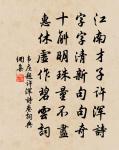 江南才子许浑诗
字字清新句句奇
十斛明珠量不尽
惠休虚作碧云词
韦庄题许浑诗卷词典
网集